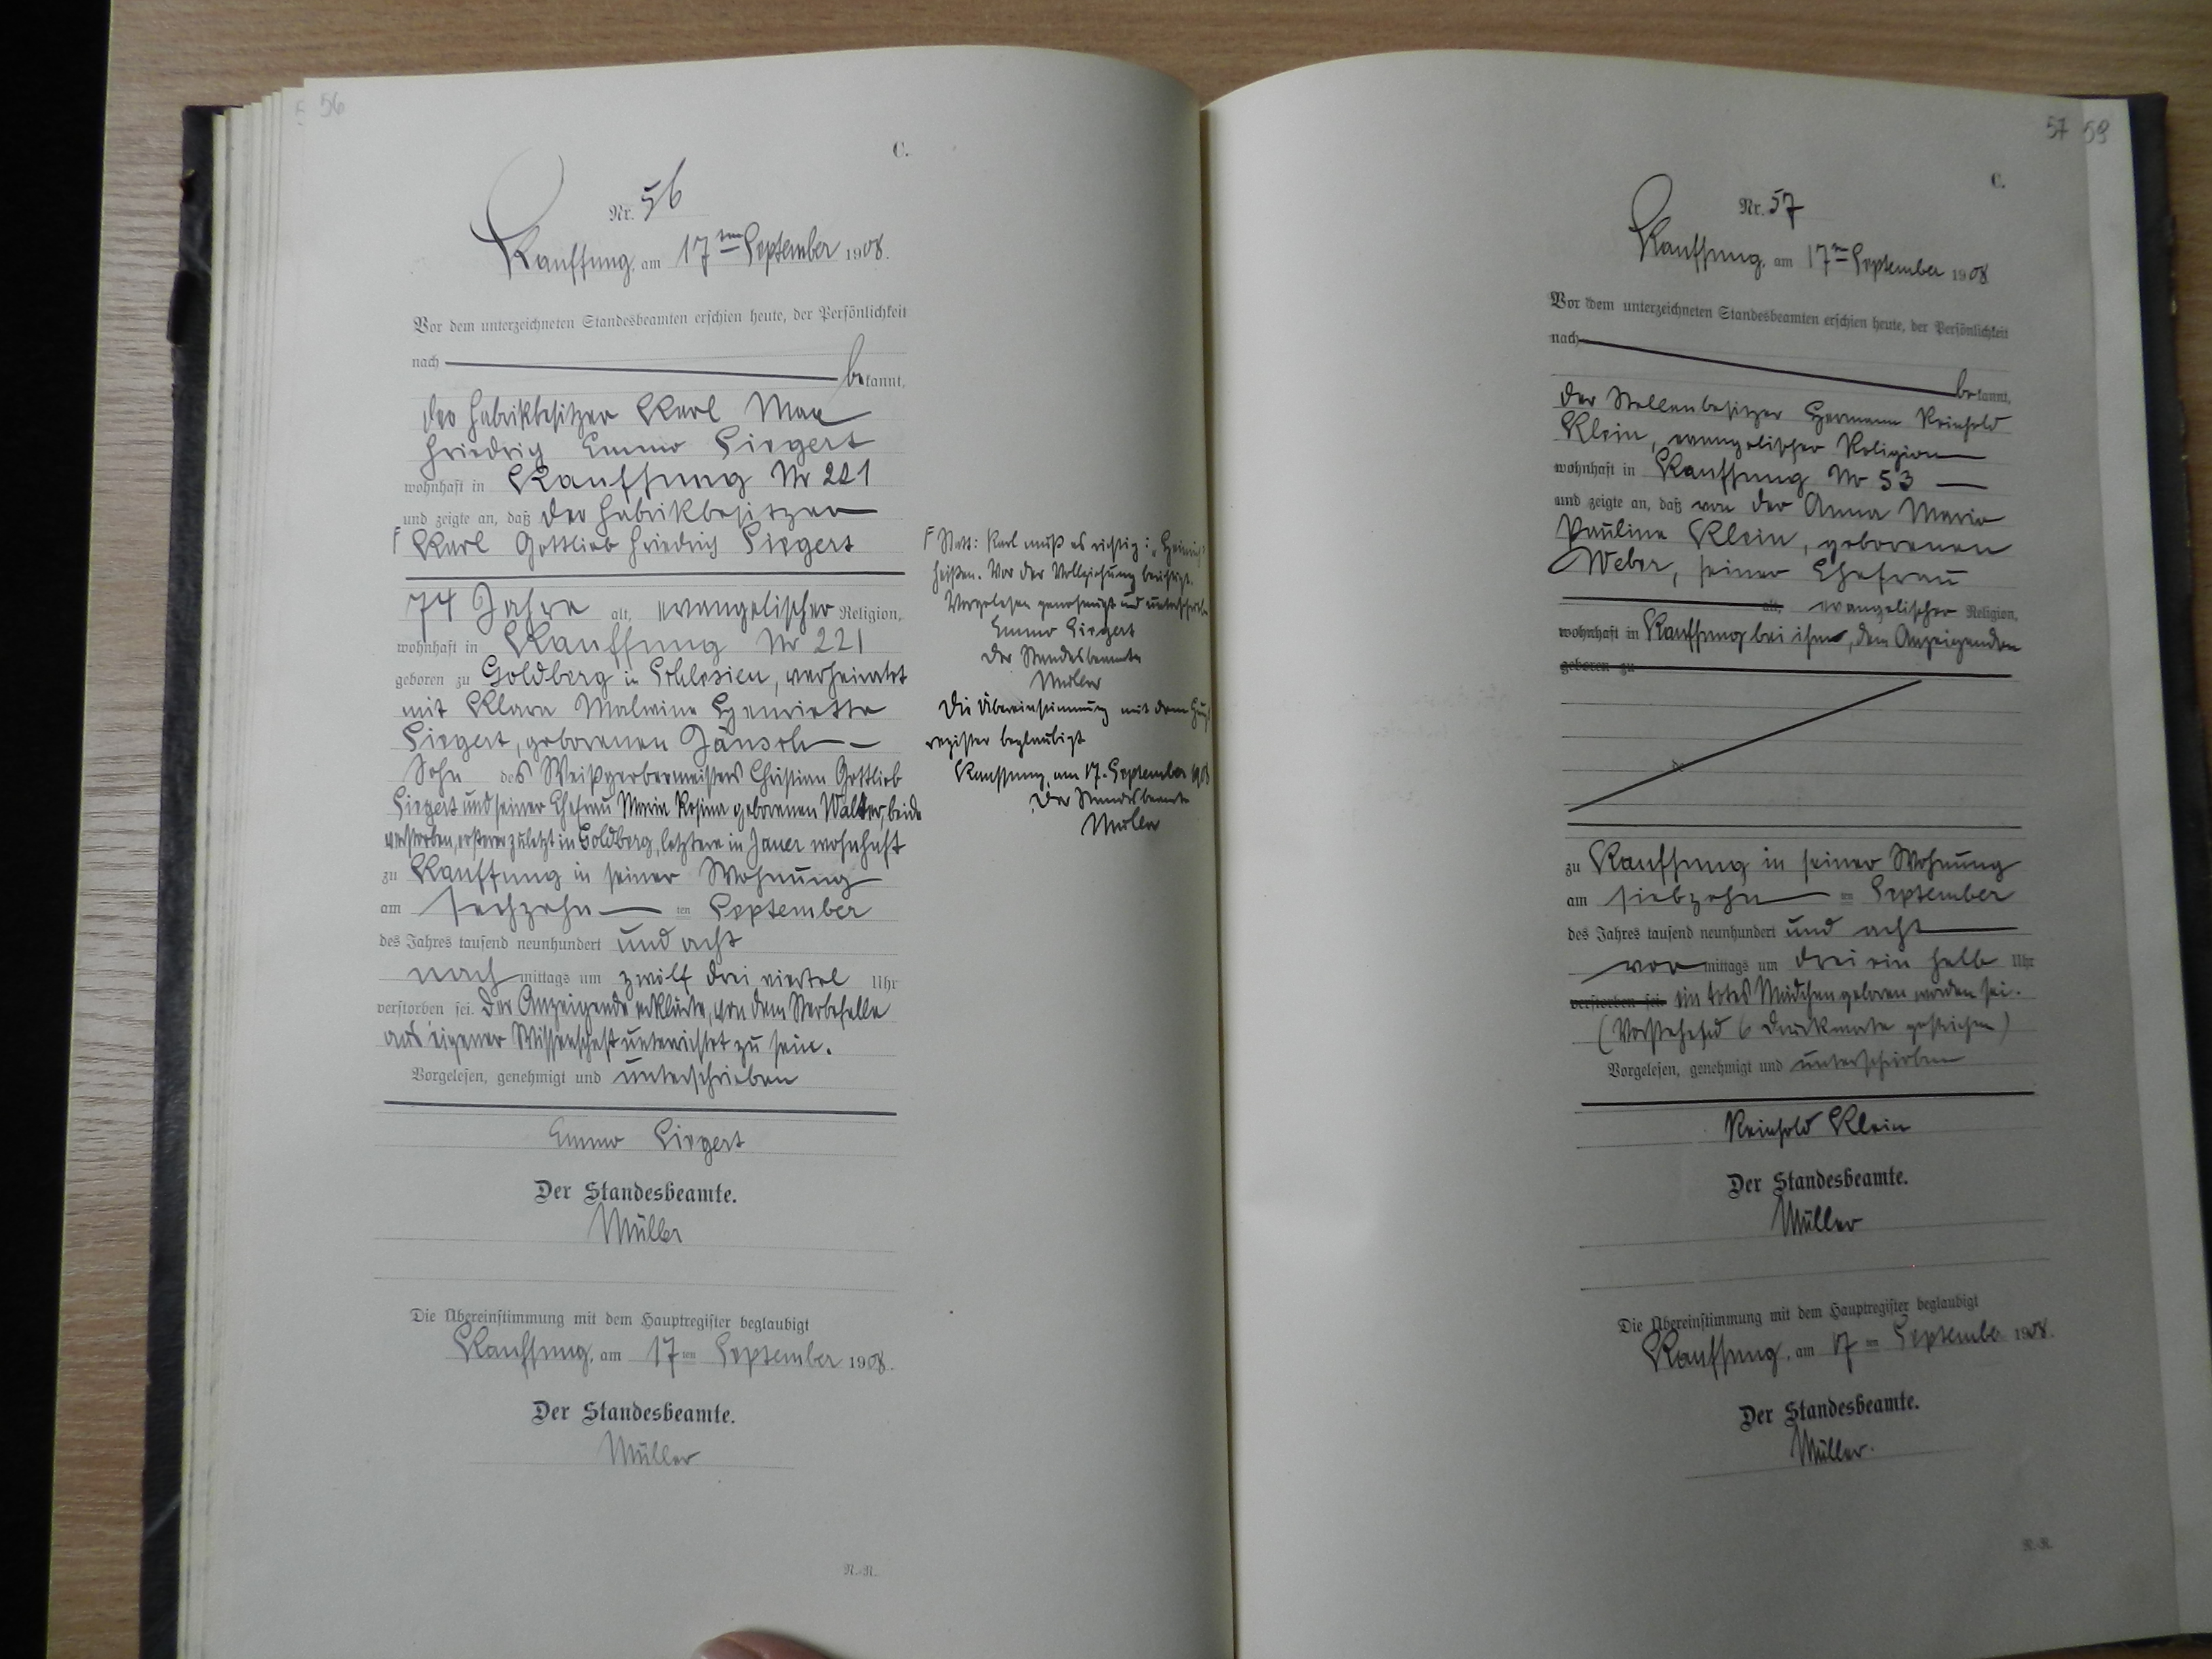 56
C.
Nr. 56
Kauffung, am 17ten September 1908.
Vor dem unterzeichneten Standesbeamten erschien heute, der Persönlichkeit
nach bekannt,
der Fabrikbesitzer Karl Max
Friedrich Emmo Siegert
wohnhaft in Kauffung Nr 221
und zeigte an, daß der Fabrikbesitzer
F Karl Gottlieb Friedrich Siegert
74 Jahre alt, evangelischer Religion,
wohnhaft in Kauffung Nr 221
geboren zu Goldberg in Schlesien, verheiratet
mit Klara Malwine Henriette
Siegert, geborenen Jänsch
Sohn des Weißgerbermeisters Christian Gottlieb
Siegert und seiner Ehefrau Maria Rosina geborenen Walter, beide
verstorben, ersterer zuletzt in Goldberg, letztere in Jauer wohnhaft
zu Kauffung in seiner Wohnung
am sechzehnten September
des Jahres tausend neunhundert und acht
nachmittags um zwölf drei viertel Uhr
verstorben sei. Der Anzeigende erklärte, von dem Sterbefalle
aus eigener Wissenschaft unterrichtet zu sein.
Vorgelesen, genehmigt und unterschrieben
Emmo Siegert
Der Standesbeamte.
Müller
Die Übereinstimmung mit dem Hauptregister beglaubigt
Kauffung, am 17ten September 1908.
Der Standesbeamte.
Müller
R.-R.
F Statt: Karl muß es richtig: „Heinrich"
heißen. Vor der Vollziehung berichtigt.
Vorgelesen genehmigt und unterschrieben
Emmo Siegert
Der Standesbeamte
Müller
Die Übereinstimmung mit dem
register beglaubigt
Kauffung, am 17. September 1908
Der Standesbeamte
Müller
57 59
C.
Nr. 57
Kauffung, am 17ten September 1908
Vor dem unterzeichneten Standesbeamten erschien heute, der Persönlichkeit
nach bekannt,
der Stellenbesitzer Hermann Reinhold
Klein, evangelischer Religion
wohnhaft in Kauffung Nr 53
und zeigte an, daß von der Anna Maria
Pauline Klein, geborenen
Weber, seiner Ehefrau
alt, evangelischer Religion,
wohnhaft in Kauffung bei ihm, dem Anzeigenden
geboren zu
de
zu Kauffung in seiner Wohnung
am siebzehnten September
des Jahres tausend neunhundert und acht
vormittags um drei ein halb Uhr
verstorben sei. ein totes Mädchen geboren worden sei.
(Vorstehend 6 Druckworte gestrichen)
Vorgelesen, genehmigt und unterschrieben
Reinhold Klein
Der Standesbeamte.
Müller
Die Übereinstimmung mit dem Hauptregister beglaubigt
Kauffung, am 17ten September 1908.
Der Standesbeamte.
Müller.
R.-R.